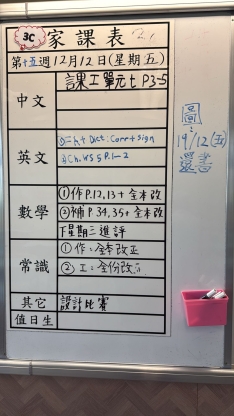 3C 家課表
第十五週 12月12日(星期五)
中文
課工單元七 P3-5
英文
Dict: Corr + sign
② Ch. WS 5 P.1-2
數學
①作 P.12,13 + 全本改
②補 P 34,35 + 全本改
下星期三進評
常識
①作:全本改正
②工:全份改正
其它
設計比賽
值日生
圖:
19/12(五)
還書